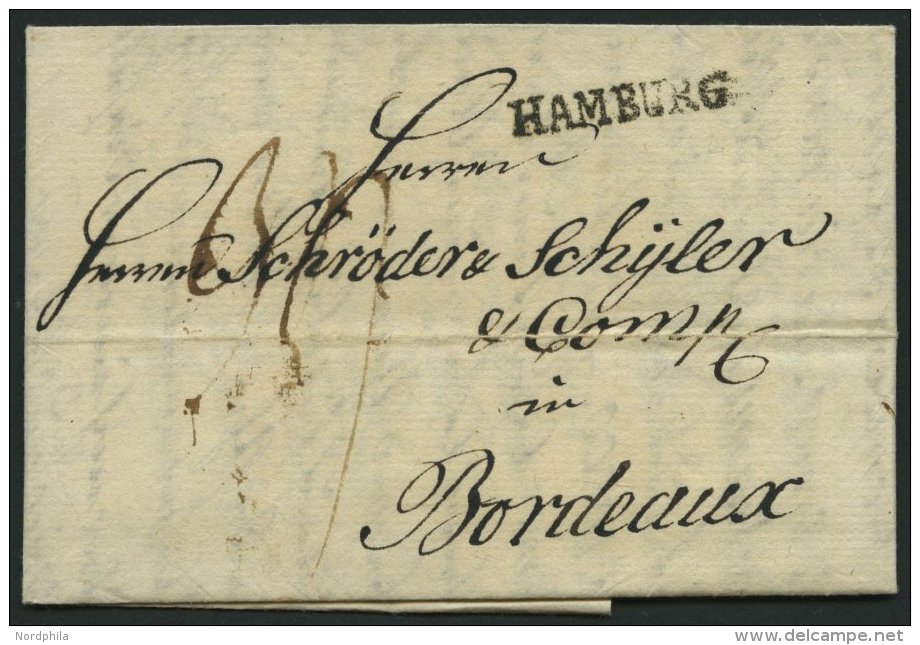 HAMBURG
Herren
Herren Schröder & Schÿler
& Comp
in
Bordeaux
Nordphila
www.delcampe.net